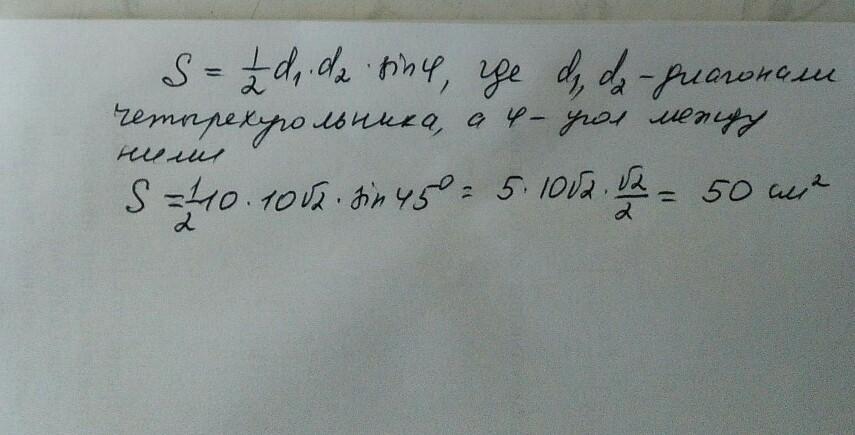 S = 1/2 d₁·d₂·sinφ, где d₁, d₂ - диагонали
четырехугольника, а φ - угол между
ними
S = 1/2 10 · 10√2 · sin 45° = 5 · 10√2 · √2/2 = 50 см²